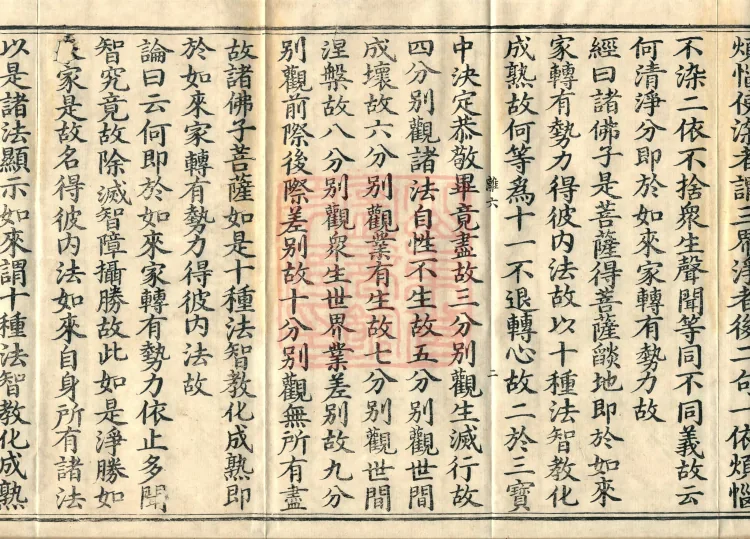 煩惱染者謂三界淨者後二句一依煩惱
不染二依不捨衆生聲聞等同不同義故云
何清淨分即於如來家轉有勢力故
經曰諸佛子是菩薩得菩薩燄地即於如來
家轉有勢力得彼内法故以十種法智教化
成熟故何等爲十一不退轉心故二於三寶
離六 二
中決定恭敬畢竟盡故三分别觀生滅行故
四分别觀諸法自性不生故五分别觀世間
成壞故六分别觀業有生故七分别觀世間
涅槃故八分别觀衆生世界業差别故九分
别觀前際後際差别故十分别觀無所有盡
故諸佛子菩薩如是十種法智教化成熟即
於如來家轉有勢力得彼内法故
論曰云何即於如來家轉有勢力依止多聞
智究竟故除滅智障攝勝故此如是淨勝如
來家是故名得彼内法如來自身所有諸法
以是諸法顯示如來謂十種法智教化成熟